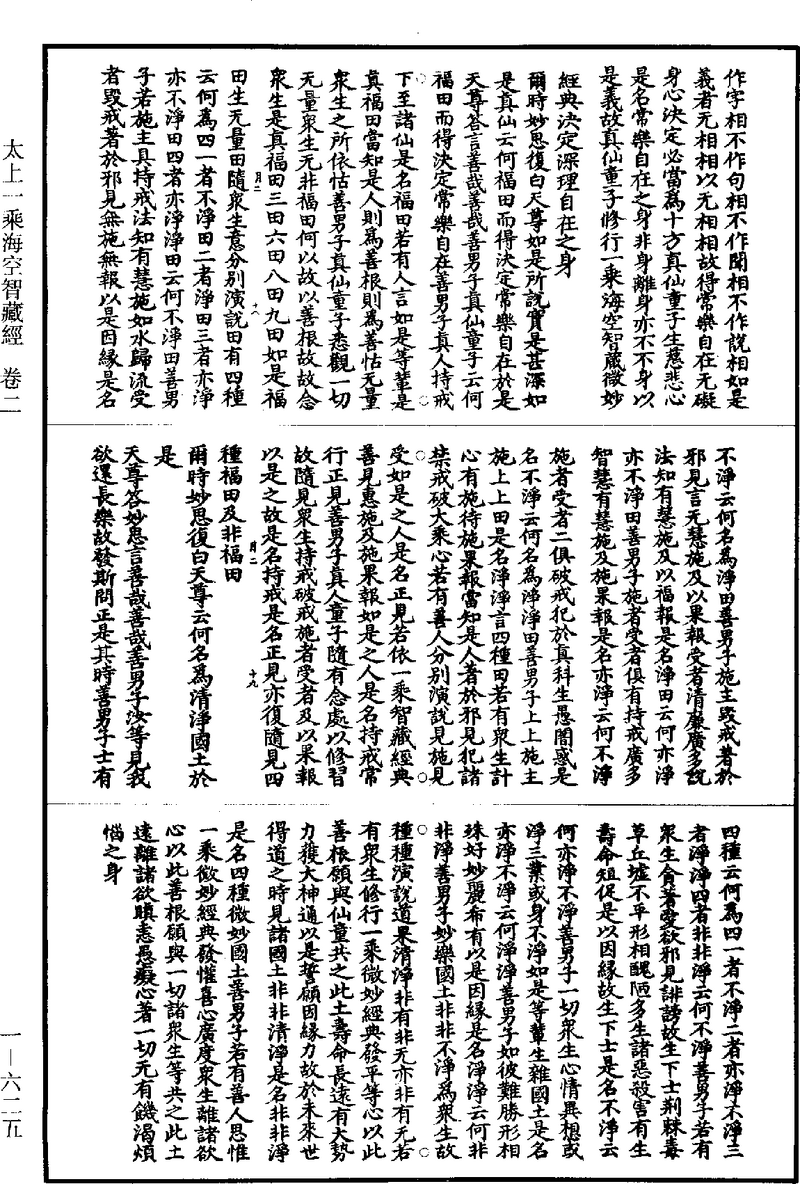 作字相不作句相不作聞相不作說相如是
義者无相相以无相相故得常樂自在无礙
身心決定必當為十方真仙童子生慈悲心
是名常樂自在之身非身離身亦不不身以
是義故真仙童子修行一乘海空智藏微妙
經典決定深理自在之身
爾時妙思復白天尊如是所說實是甚深如
是真仙云何福田而得決定常樂自在於是
天尊答言善哉善哉善男子真仙童子云何
福田而得決定常樂自在善男子真人持戒
下至諸仙是名福田若有人言如是等輩是
真福田當知是人則為善根則為善怙无量
眾生之所依怙善男子真仙童子悉觀一切
无量眾生无非福田何以故以善根故故念
眾生是真福田三田六田八田九田如是福
月二
十八
田生无量田隨眾生意分別演說田有四種
云何為四一者不淨田二者淨田三者亦淨
亦不淨田四者亦淨淨田云何不淨田善男
子若施主具持戒法知有慧施如水歸流受
者毀戒著於邪見無施無報以是因緣是名
不淨云何名為淨田善男子施主毀戒著於
邪見言无慧施及以果報受者清廉廣多說
法知有慧施及以福報是名淨田云何亦淨
亦不淨田善男子施者受者俱有持戒廣多
智慧有慧施及施果報是名亦淨云何不淨
施者受者二俱破戒犯於真科生愚闇惑是
名不淨云何名為淨淨田善男子上上施主
施上上田是名淨淨言四種田若有眾生計
心有施待施果報當知是人著於邪見犯諸
禁戒破大乘心若有善人分別演說見施見
受如是之人是名正見若依一乘智藏經典
善見惠施及施果報如是之人是名持戒常
行正見善男子真人童子隨有念處以修習
故隨見眾生持戒破戒施者受者及以果報
以是之故是名持戒是名正見亦復隨見四
月二
十九
種福田及非福田
爾時妙思復白天尊云何名為清淨國土於
是
天尊答妙思言善哉善哉善男子汝等見我
欲還長樂故發斯問正是其時善男子士有
四種云何為四一者不淨二者亦淨不淨三
者淨淨四者非非淨云何不淨善男子若有
眾生貪著愛欲邪見誹謗故生下士荊棘毒
草丘墟不平形相醜陋多生諸惡殺害有生
壽命短促是以因緣故生下士是名不淨云
何亦淨不淨善男子一切眾生心情異想或
淨三業或身不淨如是等輩生雜國土是名
亦淨不淨云何淨淨善男子如彼難勝形相
殊好妙麗希有以是因緣是名淨淨云何非
非淨善男子妙樂國土非非不淨為眾生故
種種演說道果清淨非有非无亦非有无若
有眾生修行一乘微妙經典發平等心以此
善根願與仙童共之此土壽命長遠有大勢
力獲大神通以是誓願因緣力故於未來世
得道之時見諸國土非非清淨是名非非淨
是名四種微妙國土善男子若有善人思惟
一乘微妙經典發懽喜心廣度眾生離諸欲
心以此善根願與一切諸眾生等共之此土
遠離諸欲瞋恚愚癡心著一切无有饑渴煩
惱之身
太上一乘海空智藏經 卷二
一—六二五